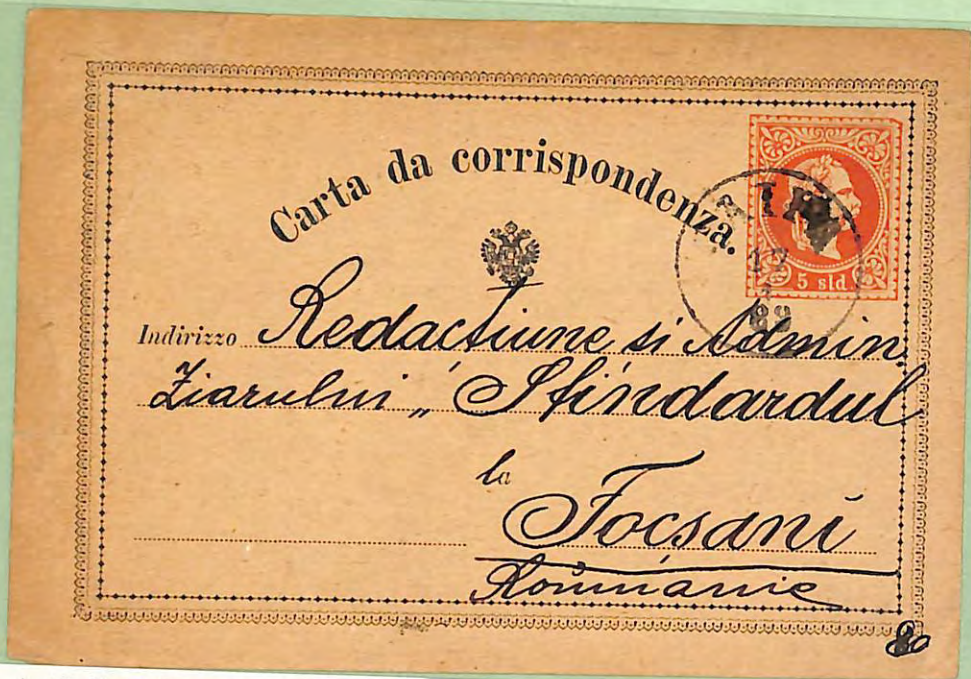 Carta da corrispondenza.
5 sld.
Indirizzo Redactiune si Admin.
Ziarului „Stindardul
la
Focsani
Roumanie